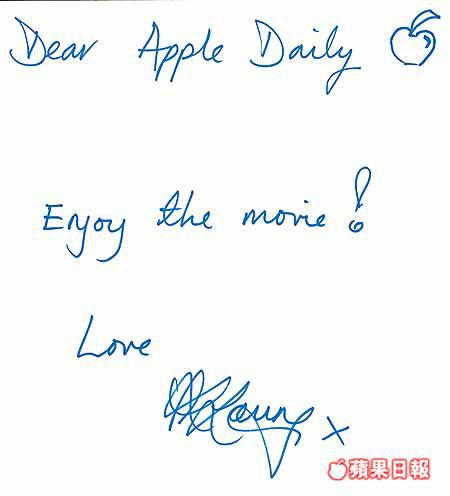 Dear Apple Daily
Enjoy the movie!
Love
x
蘋果日報